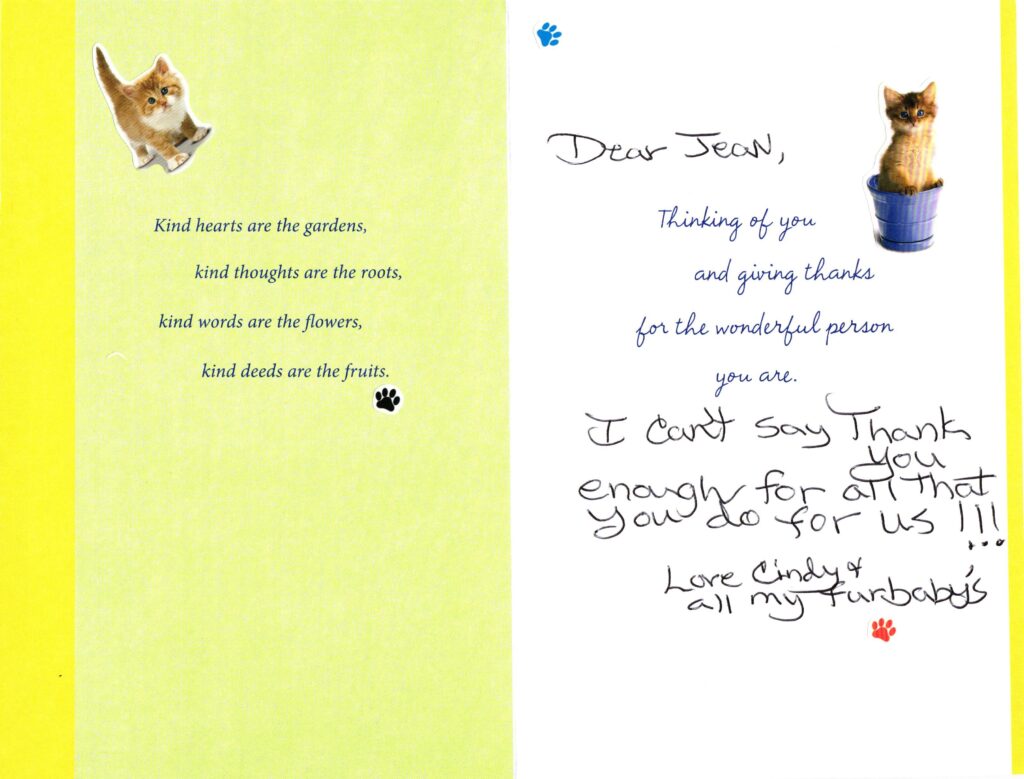 Kind hearts are the gardens,
kind thoughts are the roots,
kind words are the flowers,
kind deeds are the fruits.
Dear Jean,
Thinking of you
and giving thanks
for the wonderful person
you are.
I can't say Thank
you
enough for all that
you do for us !!!
Love Cindy &
all my furbaby's